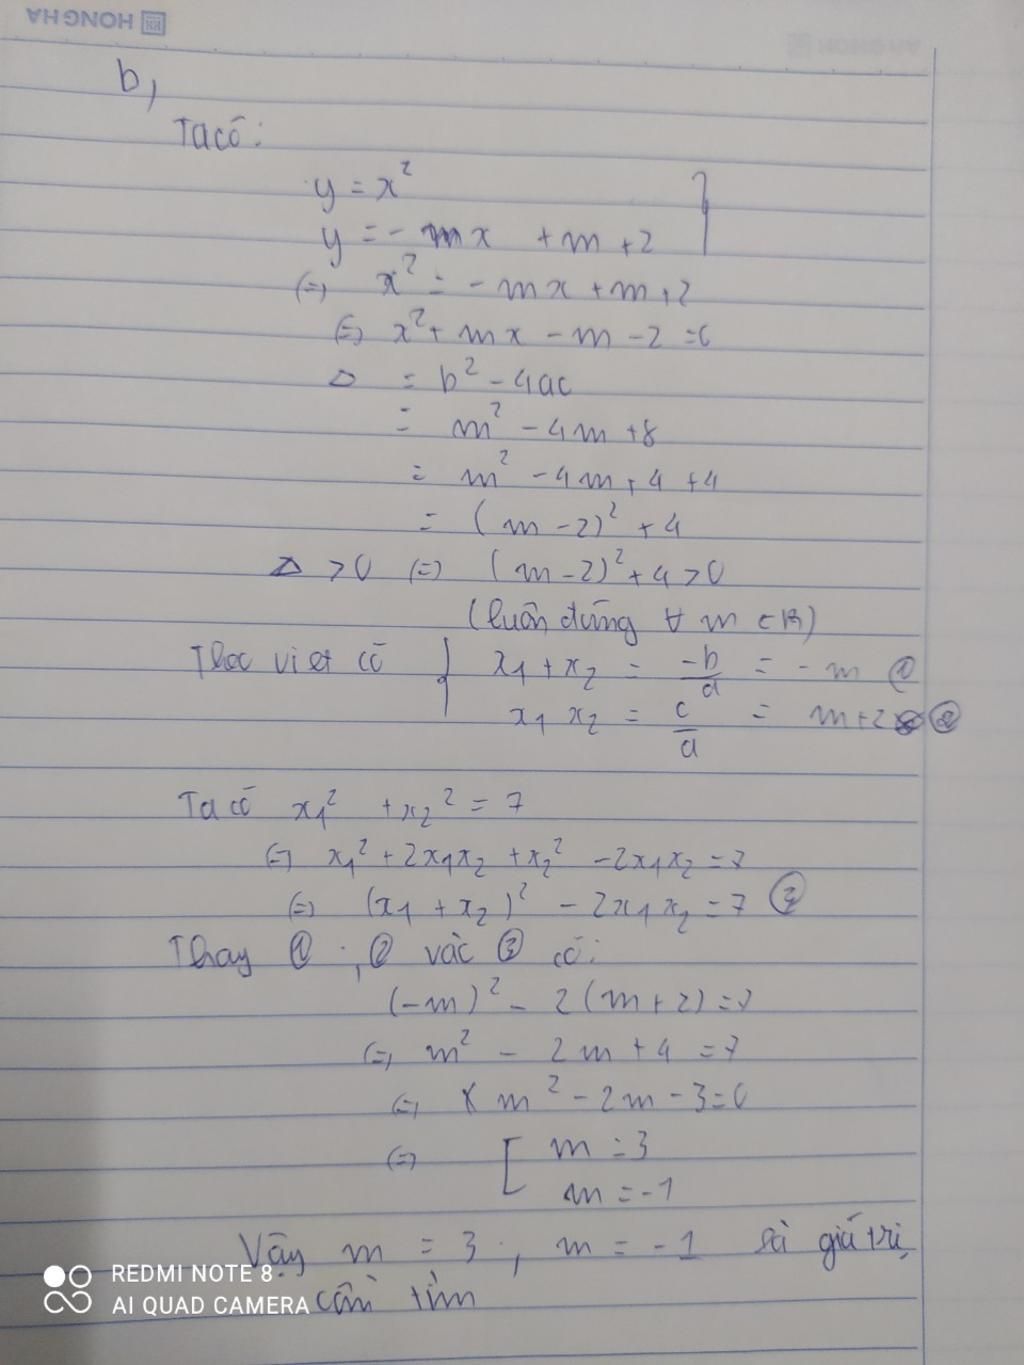 HONG HA
b,
Ta có:
y = x²
y = - mx + m + 2
(=) x² = - mx + m + 2
(=) x² + mx - m - 2 = 0
Δ = b² - 4ac
= m² - 4m + 8
= m² - 4m + 4 + 4
= (m - 2)² + 4
Δ > 0 (=) (m - 2)² + 4 > 0
(luôn đúng ∀ m ∈ R)
Theo viet có { x₁ + x₂ = -b/a = - m ①
x₁ x₂ = c/a = m + 2 ②
Ta có x₁² + x₂² = 7
(=) x₁² + 2x₁x₂ + x₂² - 2x₁x₂ = 7
(=) (x₁ + x₂)² - 2x₁x₂ = 7 ③
Thay ① ; ② vào ③ có:
(-m)² - 2(m + 2) = 7
(=) m² - 2m + 4 = 7
(=) m² - 2m - 3 = 0
(=) [ m = 3
m = -1
Vậy m = 3 ; m = -1 là giá trị
cần tìm
REDMI NOTE 8
AI QUAD CAMERA